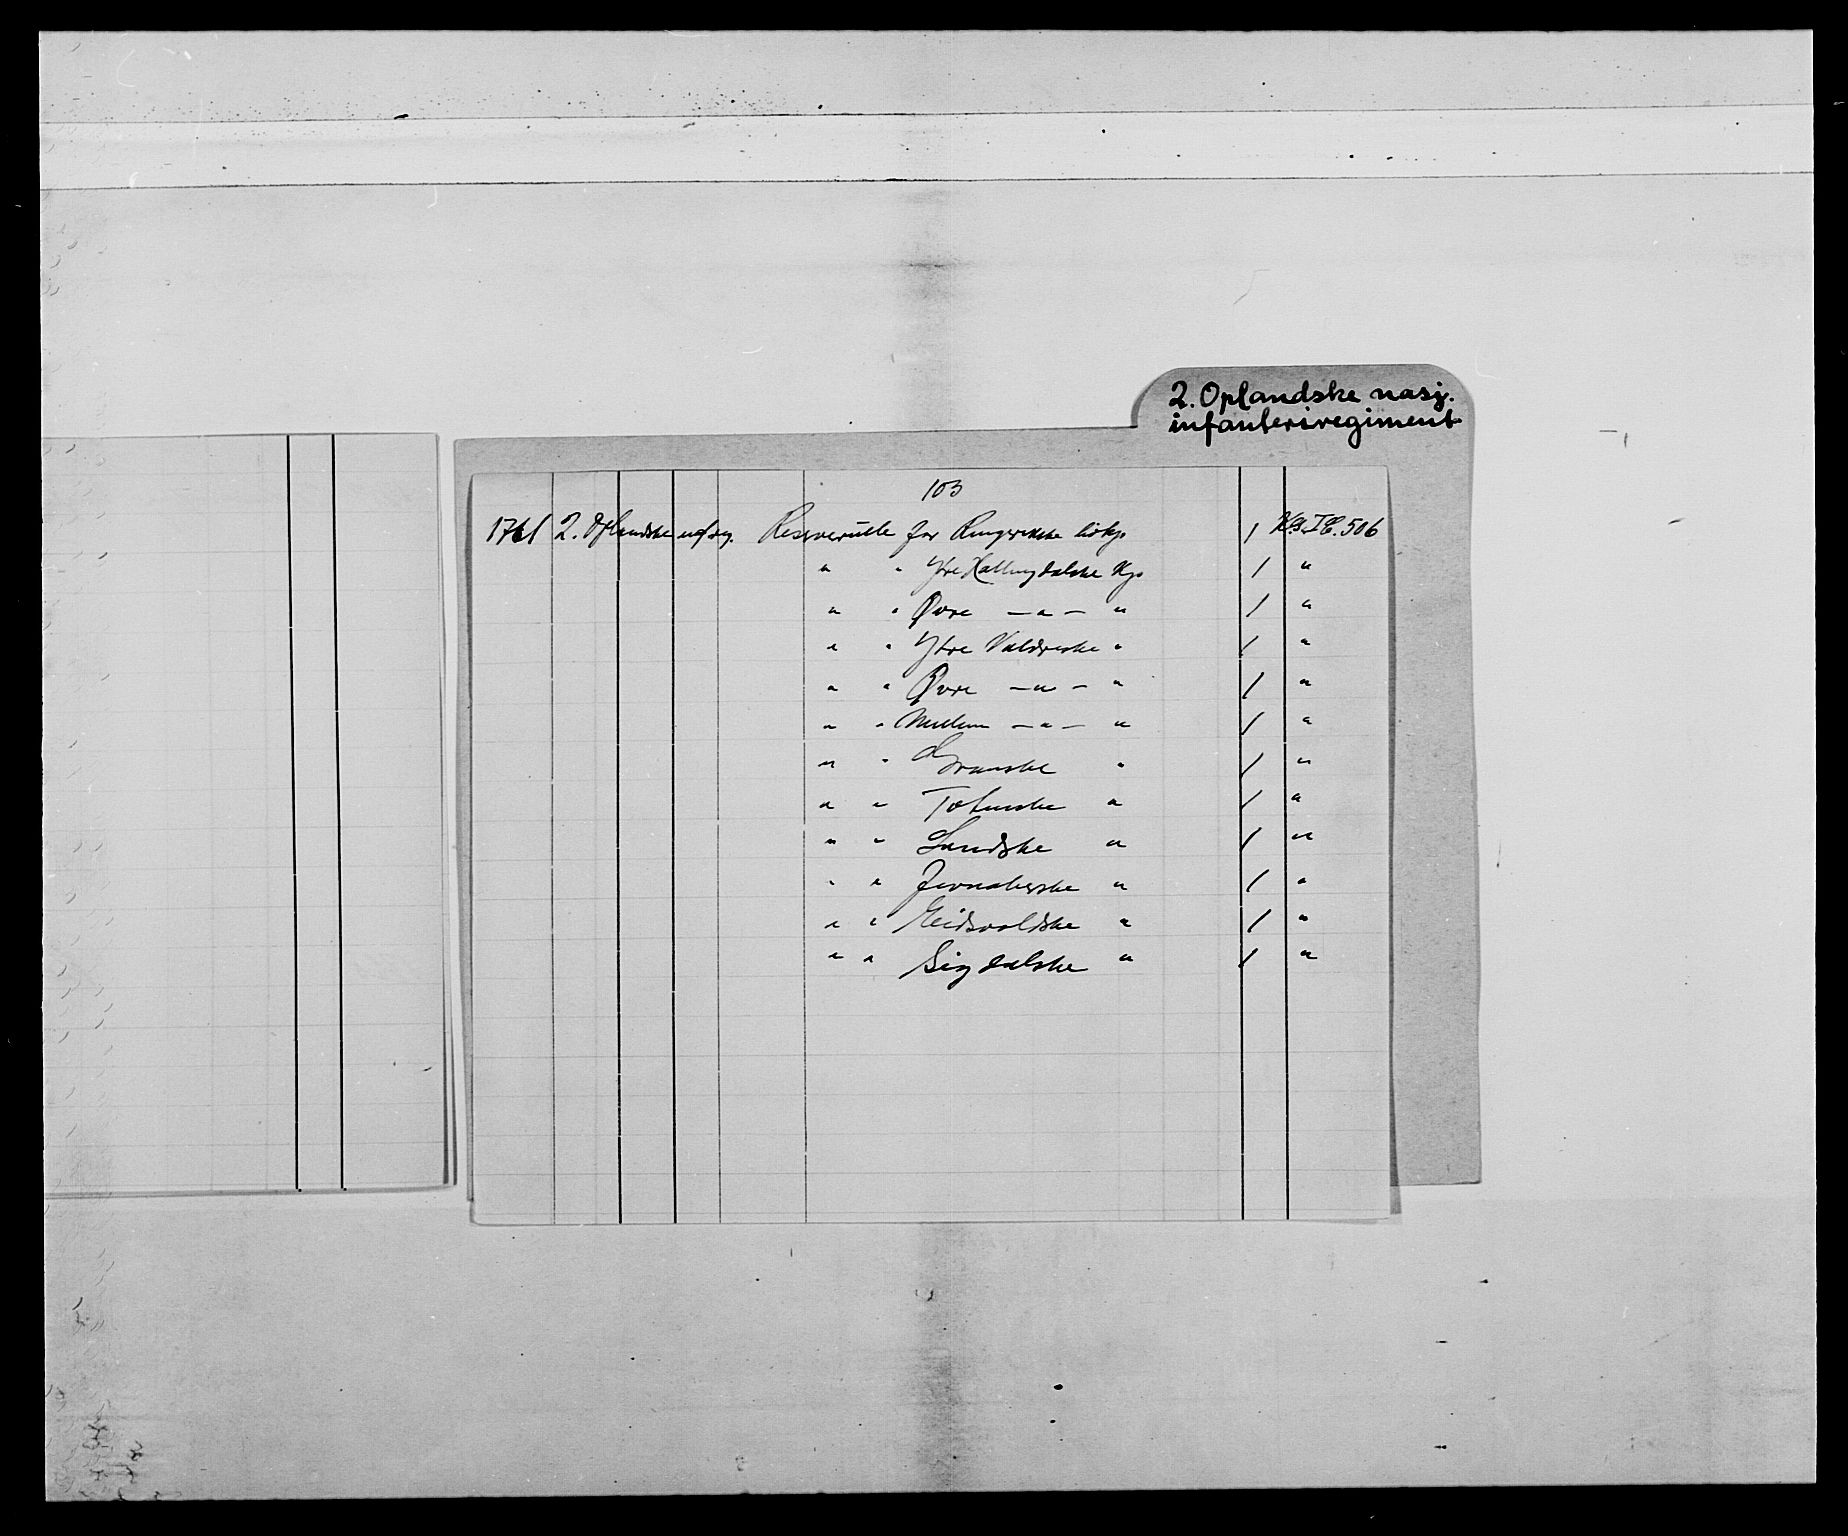 2. Oplandske nasj.
infanteriregiment
103
1761 2. Oplandske nf reg. Reserverulle for Ringerikske livkp. 1 Kp. I C. 506
" " Ytre Hallingdalske Kp. 1 "
" " Øvre — " — " 1 "
" " Ytre Valdreske " 1 "
" " Øvre — " — " 1 "
" " Mellem — " — " 1 "
" " Granske " 1 "
" " Totenske " 1 "
" " Landske " 1 "
" " Jevnakerske " 1 "
" " Eidsvoldske " 1 "
" " Sigdalske " 1 "